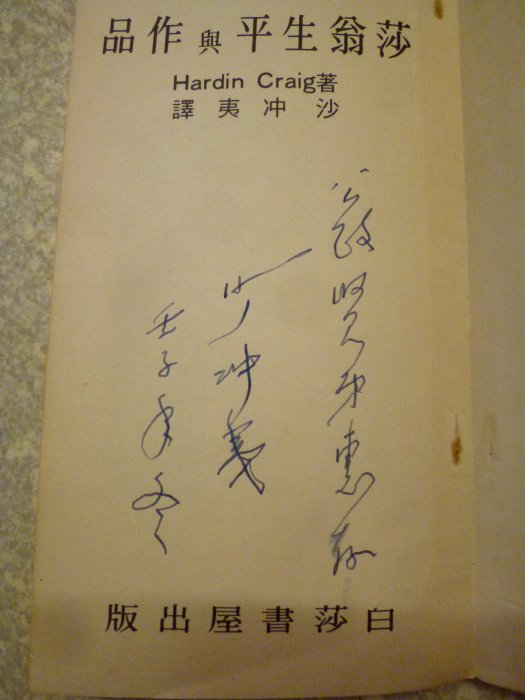 莎翁生平與作品
Hardin Craig著
沙冲夷譯
公賢弟惠存
沙冲夷
壬子年冬
白莎書屋出版